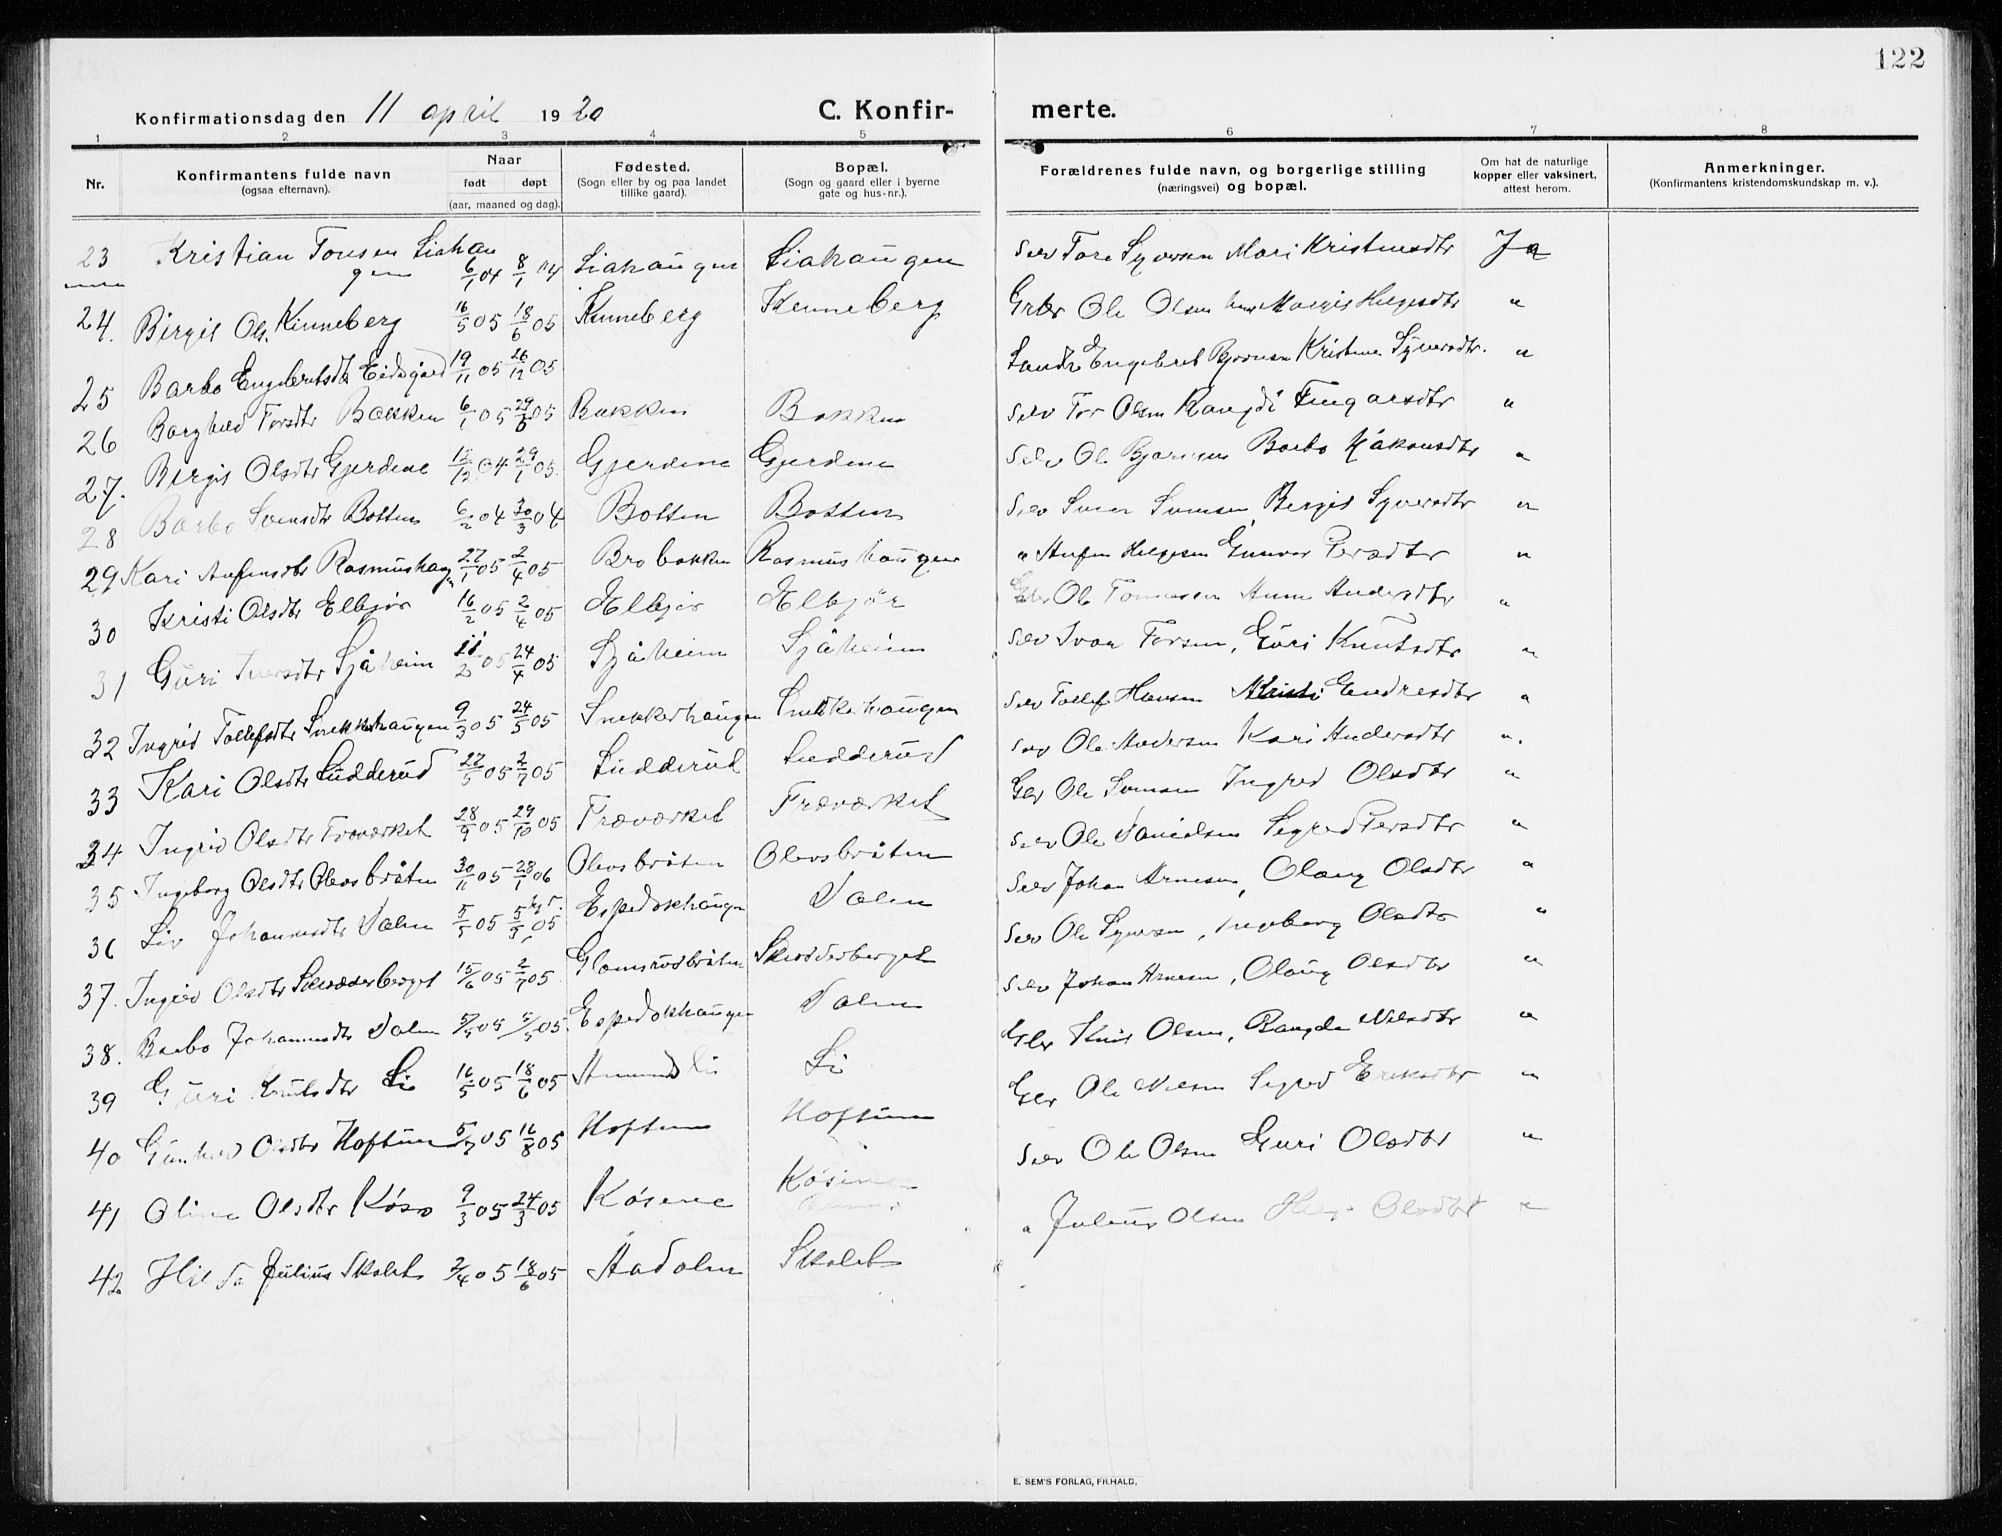 122
Konfirmationsdag den 11 april 1920 C. Konfir- merte.
1 2 3 4 5 6 7 8
Nr. Konfirmantens fulde navn (ogsaa efternavn). Naar født døpt (aar, maaned og dag). Fødested. (Sogn eller by og paa landet tillike gaard). Bopæl. (Sogn og gaard eller i byerne gate og hus-nr.). Forældrenes fulde navn, og borgerlige stilling (næringsvei) og bopæl. Om hat de naturlige kopper eller vaksinert, attest herom. Anmerkninger. (Konfirmantens kristendomskundskap m. v.).
23 Kristian Torsen Liahaugen 6/1 04 8/1 04 Liahaugen Liahaugen Selv Tore Syversen Mari Kristensdtr Ja
24. Birgit Ols. Kinneberg 16/5 05 18/6 05 Kinneberg Kenneberg Ole Olsen Margit Helgesdtr "
25 Barbo Engebretsdtr Eidsgård 19/11 05 26/12 05 Engebret Bjørnsen Kristine Syversdtr. "
26 Borghild Torsdtr Bakken 6/1 05 29/ 05 Bakken Bakken Selv Tor Olsen Rangdi Fingarsdtr "
27. Birgit Olsdtr Gjerdene 12/12 04 29/1 05. Gjerdene Gjerdene Selv Ole Bjørnsen Barbo Håkonsdtr "
28 Barbo Svensdtr Botten 6/2 04 30/3 04 Botten Botten Selv Sven Svensen Bergit Syversdtr "
29 Kari Anfensdtr Rasmushaugen 27/1 05 2/4 05 Brobakken Rasmushaugen " Anfen Helgesen Gunvor Persdtr "
30 Kristi Olsdtr Elbjør 16/2 05 2/4 05 Elbjør Elbjør Ole Tommesen Anne Andersdtr "
31 Guri Iversdtr Sjåheim 11/2 05 24/4 05 Sjåheim Sjåheim Selv Ivar Torsen, Guri Knutsdtr "
32 Ingrid Tollefsdtr Snekkerhaugen 9/3 05 24/5 05 Snekkerhaugen Snekkerhaugen Selv Tollef Hansen Kristi Endresdtr "
33 Kari Olsdtr Ludderud 22/5 05 2/7 05 Ludderud Ludderud Selv Ole Andersen Kari Andersdtr "
34 Ingrid Olsdtr Træværket 28/9 05 29/10 05 Træværket Træværket Ole Svensen Ingrid Olsdtr "
35 Ingeborg Olsdtr Olevsbråten 30/11 05 28/1 06 Olevsbråten Olevsbråten Selv Ole Danielsen Sigrid Persdtr "
36 Liv Johannesdtr Dalen 5/5 05 5/5 05 Espedokhaugen Dalen Selv Johan Arnesen, Olaug Olsdtr "
37. Ingrid Olsdtr Skrædderberget 15/6 05 2/7 05. Glomsrudbråten Skrædderberget Selv Ole Syversen, Ingeborg Olsdtr "
38. Barbo Johannesdtr Dalen 5/5 05 5/5 05. Espedokhaugen Dalen Selv Johan Arnesen, Olaug Olsdtr "
39 Guri Knutsdtr Li 16/5 05 18/6 05 Li Knut Olsen, Rangdi Nilsdtr "
40 Gunhild Olsdtr Hoftun 5/7 05 16/8 05 Hoftun Hoftun Ole Nilsen Sigrid Eriksdtr "
41 Oline Olsdtr Køsen 9/3 05 24/3 05 Køsene Køsene Selv Ole Olsen Guri Olsdtr "
42 Hilda Julius Skolet 2/4 05 18/6 05 Aadalen Skolet " Julius Olsen Olsdtr "
E. SEM'S FORLAG, FR.HALD.